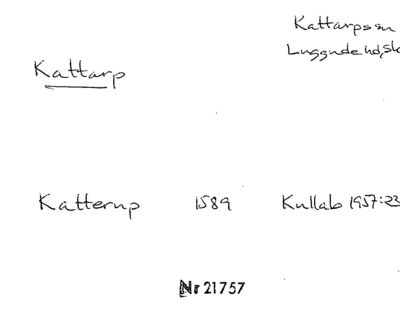 Kattarps sn
Luggude hd, Sk
Kattarp
Katterup 1589 Kullab 1957:23
Nr 21757